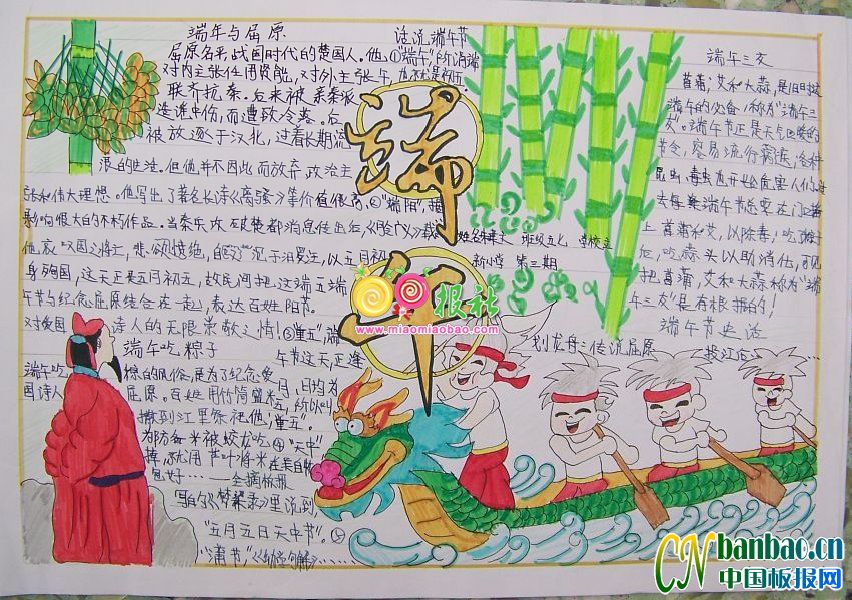 端午与屈原
屈原名平,战国时代的楚国人。他
对内主张任用贤能,对外主张
联齐抗秦。后来被亲秦派
造谗中伤,而遭致冷落。后
被放逐于汉北,过着长期流
浪的生活。但他并不因此而放弃政治主
张和伟大理想。他写出了著名长诗《离骚》等价值很高,
影响很大的不朽作品。当秦兵攻破楚都消息传出后,
他哀叹国之将亡,悲愤绝,自沉于汨罗江,以五月初
身殉国,这天正是五月初五,故民间把这端五端
午节与纪念屈原结合在一起,表达百姓
对爱国
诗人的无限崇敬之情!
端午吃粽子
端午吃
粽的风俗,是为了纪念爱
国诗人
屈原。百姓用竹筒盛米
撒到江里祭祀他,
为防备米被蛟龙吃
掉,就用芦叶将米
包好……——全摘标报
这说端午节
①"端午",
②"端阳",据
③"重五",端
午节这天,正逢
月、日均为
五,所以叫
"重五"。
④"天中"
里说到
"五月五日天中节"。⑤
"蒲节",
端午
班级五
新小学 第三期
端午三友
菖蒲,艾和大蒜,是旧时过
端午的必备,称为"端午三
友"。端午节正是天气
节令,容易流行
昆虫,毒虫也开始危害人们,过
去每逢端午节总要在门口插
上菖蒲和艾,以除毒;吃
吃蒜头以助消化,可见
把菖蒲,艾和大蒜称为"端
午三友"是有根据的!
端午节史话
划龙舟:传说屈原
投江后……
报社
www.miaomiaobao.com
CNbanbao.cn
中国板报网